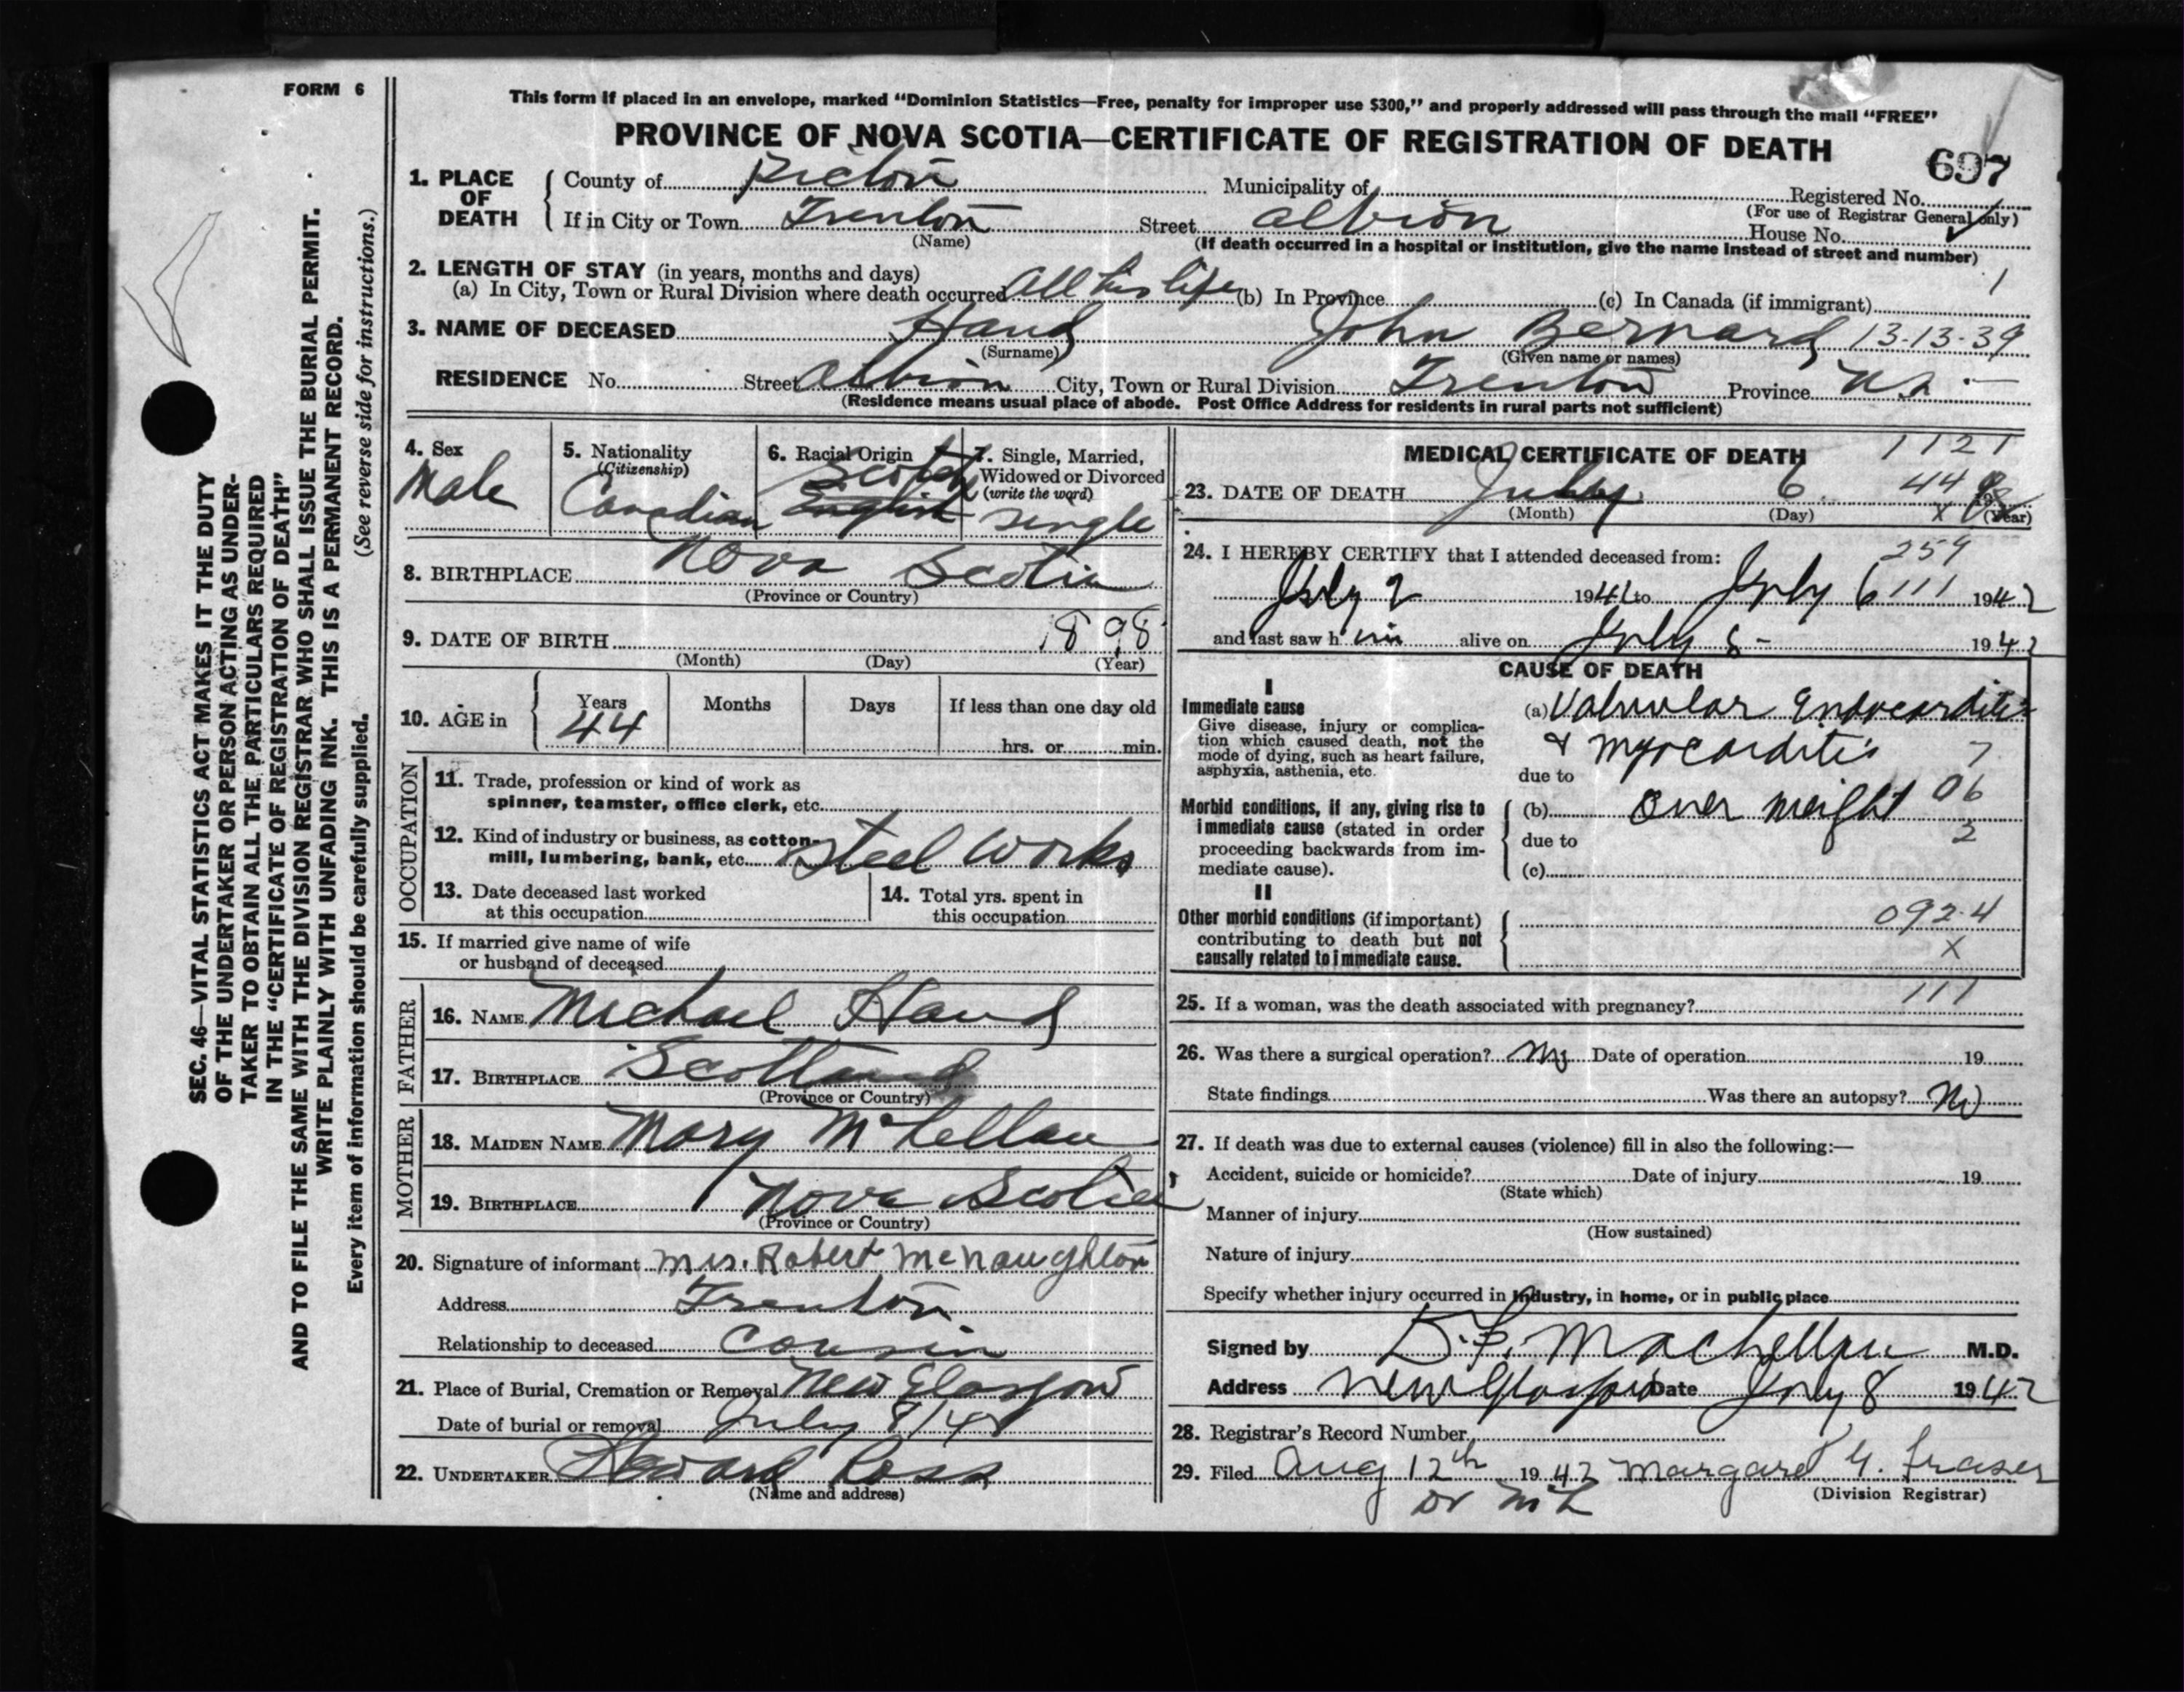 FORM 6
This form if placed in an envelope, marked “Dominion Statistics—Free, penalty for improper use $300,” and properly addressed will pass through the mail “FREE”
PROVINCE OF NOVA SCOTIA—CERTIFICATE OF REGISTRATION OF DEATH
697
1. PLACE OF DEATH
County of Pictou Municipality of Registered No.
(For use of Registrar General only)
If in City or Town Trenton Street Albion House No.
(Name) (If death occurred in a hospital or institution, give the name instead of street and number)
2. LENGTH OF STAY (in years, months and days)
(a) In City, Town or Rural Division where death occurred All his life (b) In Province (c) In Canada (if immigrant) 1
3. NAME OF DECEASED Hand John Bernard 13-13-39
(Surname) (Given name or names)
RESIDENCE No. Street Albion City, Town or Rural Division Trenton Province N.S.
(Residence means usual place of abode. Post Office Address for residents in rural parts not sufficient)
4. Sex
Male
5. Nationality
(Citizenship)
Canadian
6. Racial Origin
Scotch
English
7. Single, Married, Widowed or Divorced
(write the word)
Single
8. BIRTHPLACE Nova Scotia
(Province or Country)
9. DATE OF BIRTH 1898
(Month) (Day) (Year)
10. AGE in
Years Months Days If less than one day old
44 hrs. or min.
OCCUPATION
11. Trade, profession or kind of work as
spinner, teamster, office clerk, etc.
12. Kind of industry or business, as cotton-
mill, lumbering, bank, etc. Steel Works
13. Date deceased last worked
at this occupation
14. Total yrs. spent in
this occupation
15. If married give name of wife
or husband of deceased
FATHER
16. NAME Michael Hand
17. BIRTHPLACE Scotland
(Province or Country)
MOTHER
18. MAIDEN NAME Mary McLellan
19. BIRTHPLACE Nova Scotia
(Province or Country)
20. Signature of informant Mrs. Robert McNaughton
Address Trenton
Relationship to deceased cousin
21. Place of Burial, Cremation or Removal New Glasgow
Date of burial or removal July 8/42
22. UNDERTAKER Howard Ross
(Name and address)
MEDICAL CERTIFICATE OF DEATH 1121
23. DATE OF DEATH July 6 44
(Month) (Day) (Year)
x
24. I HEREBY CERTIFY that I attended deceased from: 259
July 2 1942 to July 6 111 1942
and last saw him alive on July 1942
CAUSE OF DEATH
I
Immediate cause
Give disease, injury or complica-
tion which caused death, not the
mode of dying, such as heart failure,
asphyxia, asthenia, etc.
(a) Valvular Endocarditis
& myocarditis 7
due to
Morbid conditions, if any, giving rise to
immediate cause (stated in order
proceeding backwards from im-
mediate cause).
(b) over weight 06
due to 2
(c)
II
Other morbid conditions (if important)
contributing to death but not
causally related to immediate cause.
092.4
x
25. If a woman, was the death associated with pregnancy? 111
26. Was there a surgical operation? No Date of operation 19
State findings Was there an autopsy? No
27. If death was due to external causes (violence) fill in also the following:—
Accident, suicide or homicide? Date of injury 19
(State which)
Manner of injury
(How sustained)
Nature of injury
Specify whether injury occurred in industry, in home, or in public place
Signed by D.F. MacLellan M.D.
Address New Glasgow Date July 8 1942
28. Registrar's Record Number
29. Filed Aug 12th 1942 Margaret G. Fraser
(Division Registrar)
Dr McL
SEC. 46—VITAL STATISTICS ACT MAKES IT THE DUTY
OF THE UNDERTAKER OR PERSON ACTING AS UNDER-
TAKER TO OBTAIN ALL THE PARTICULARS REQUIRED
IN THE “CERTIFICATE OF REGISTRATION OF DEATH”
AND TO FILE THE SAME WITH THE DIVISION REGISTRAR WHO SHALL ISSUE THE BURIAL PERMIT.
WRITE PLAINLY WITH UNFADING INK. THIS IS A PERMANENT RECORD.
Every item of information should be carefully supplied. (See reverse side for instructions.)